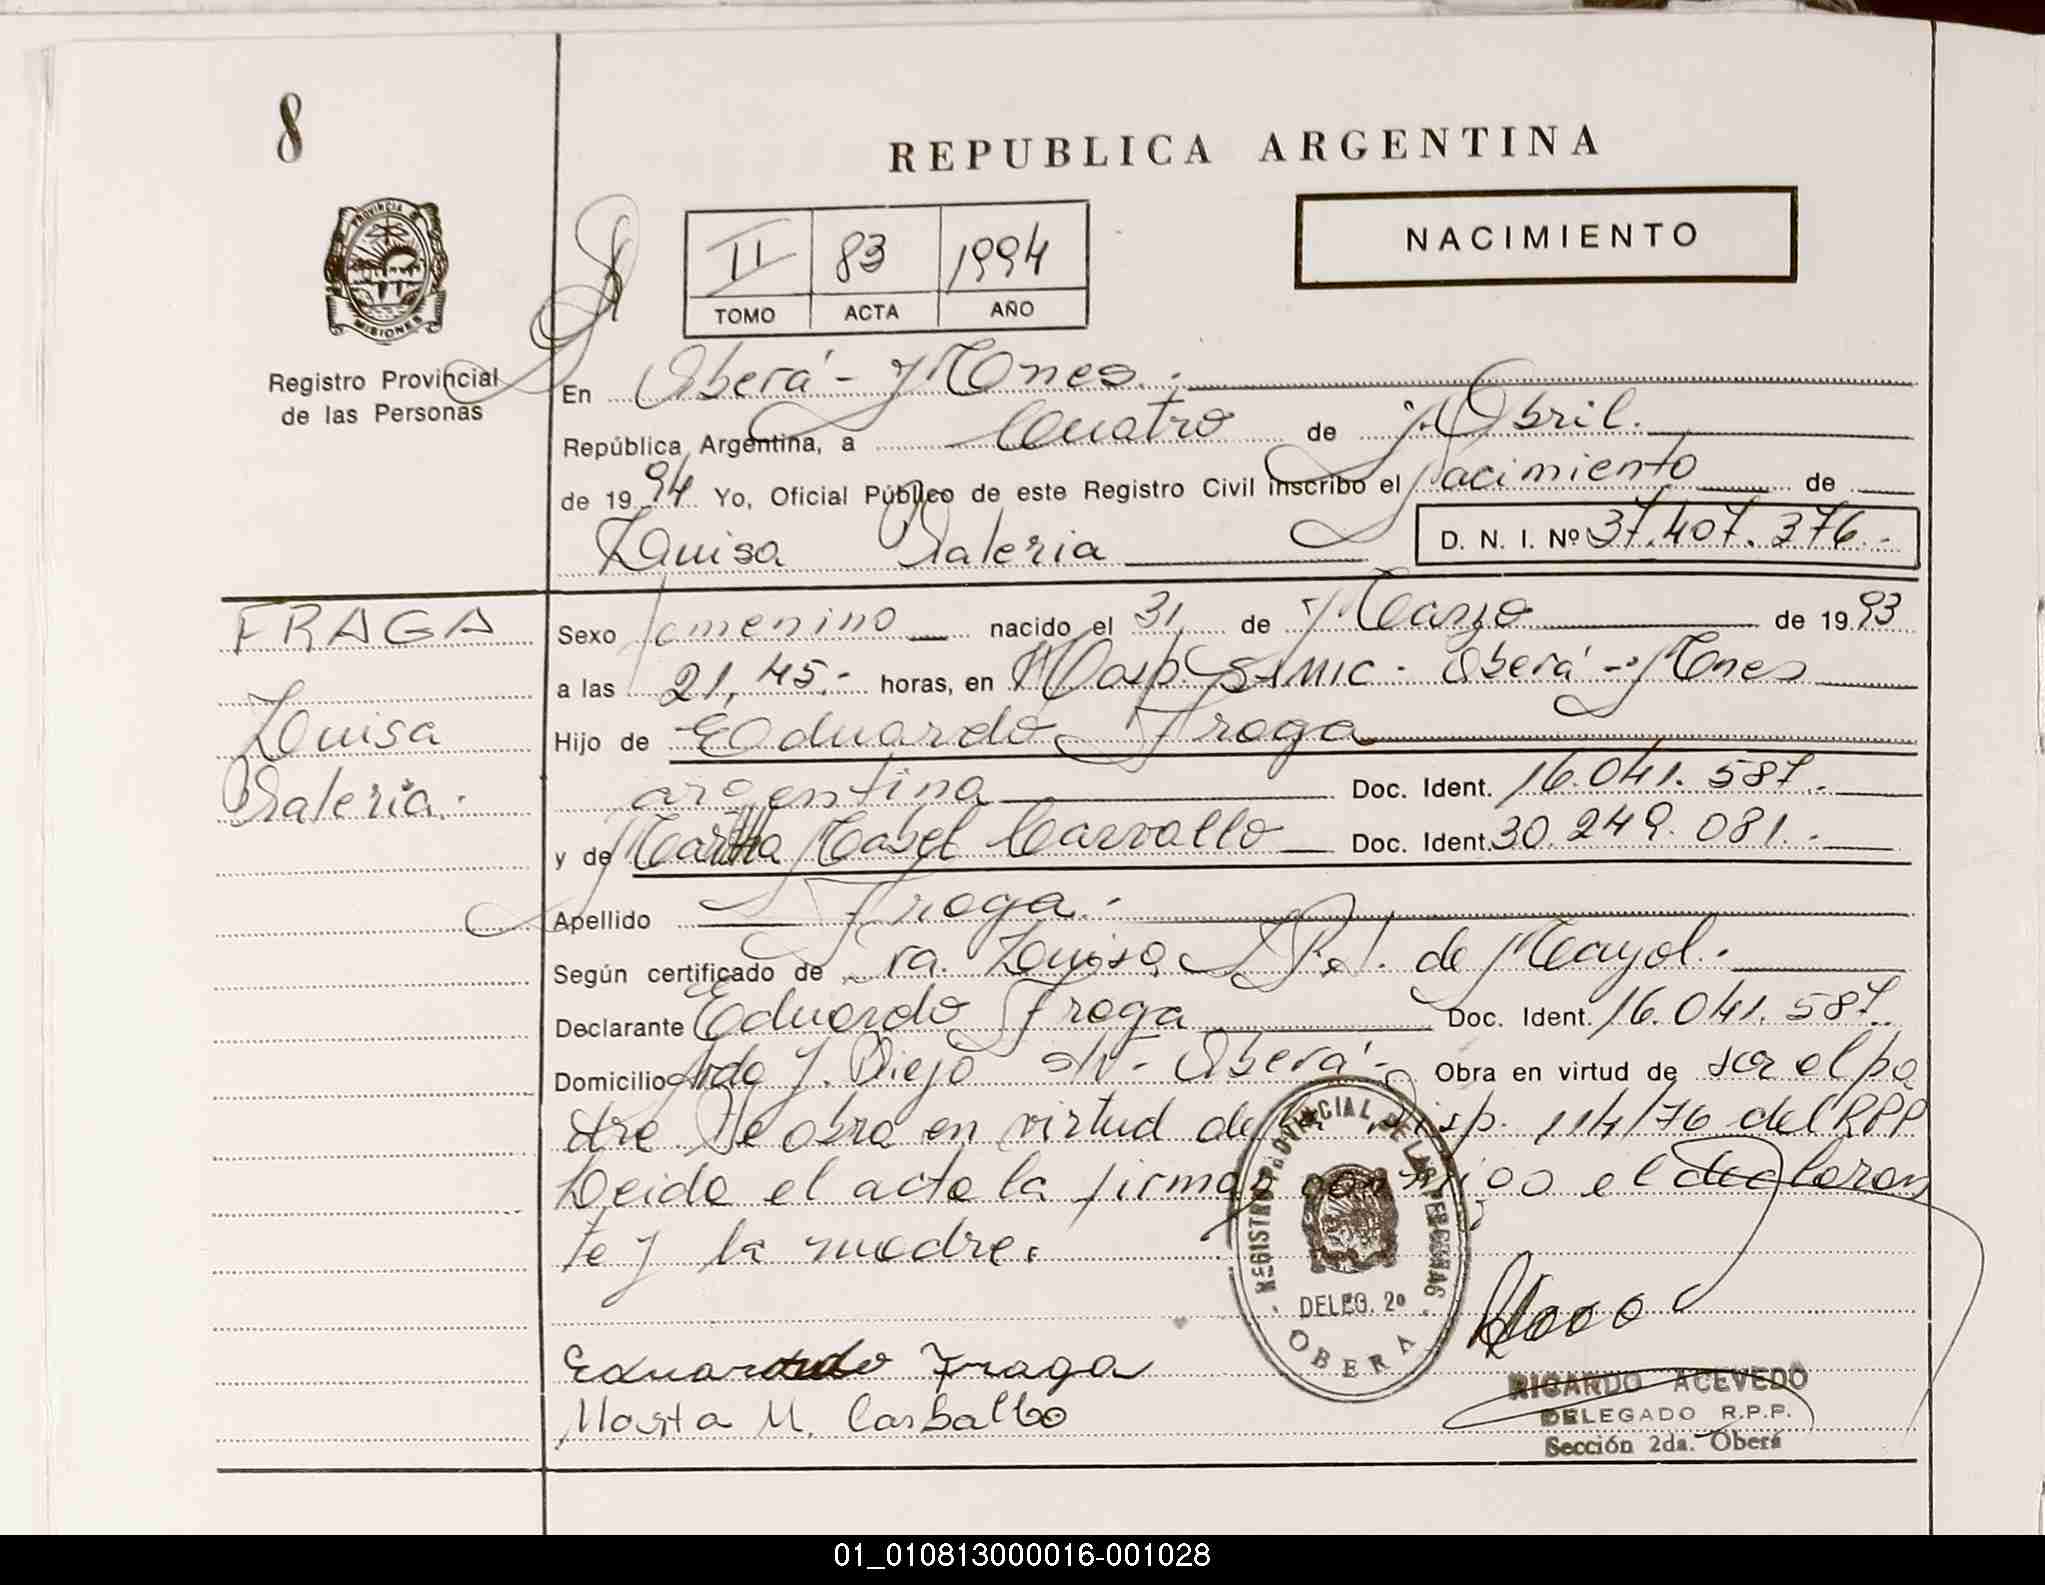 8
REPUBLICA ARGENTINA
PROVINCIA DE
MISIONES
Registro Provincial
de las Personas
II 83 1994
TOMO ACTA AÑO
NACIMIENTO
En Oberá - Mnes.
República Argentina, a Cuatro de Abril.
de 1994 Yo, Oficial Público de este Registro Civil inscribo el Nacimiento de
Luisa Valeria D. N. I. Nº 37.407.376.-
FRAGA
Luisa
Valeria.
Sexo femenino nacido el 31 de Marzo de 1993
a las 21,45.- horas, en Hosp. SAMIC - Oberá - Mnes
Hijo de Eduardo Fraga
argentina Doc. Ident. 16.041.587.-
y de Martha Mabel Carvallo Doc. Ident. 30.249.081.-
Apellido Fraga.-
Según certificado de ra. Luisa de Mayol.-
Declarante Eduardo Fraga Doc. Ident. 16.041.587.
Domicilio Avda J. Diejo s/n - Oberá - Obra en virtud de ser el pa
dre Se obra en virtud de la Disp. 114/76 del RPP
Leida el acta la firman conmigo el declaran
te y la madre.
REGISTRO PROVINCIAL DE LAS PERSONAS
DELEG. 2º
OBERA
Eduardo Fraga
Marta M. Carballo
RICARDO ACEVEDO
DELEGADO R.P.P.
Sección 2da. Oberá
01_010813000016-001028